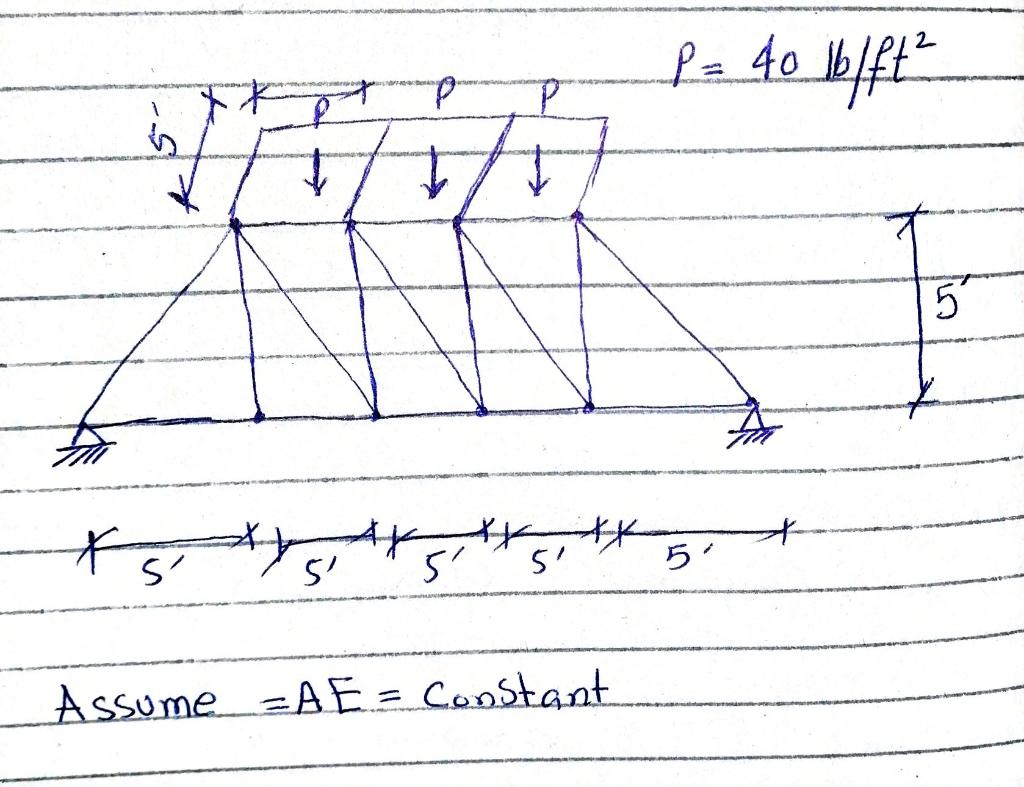 P = 40 lb/ft²
P P P
5'
5'
5' 5' 5' 5' 5'
Assume = AE = Constant